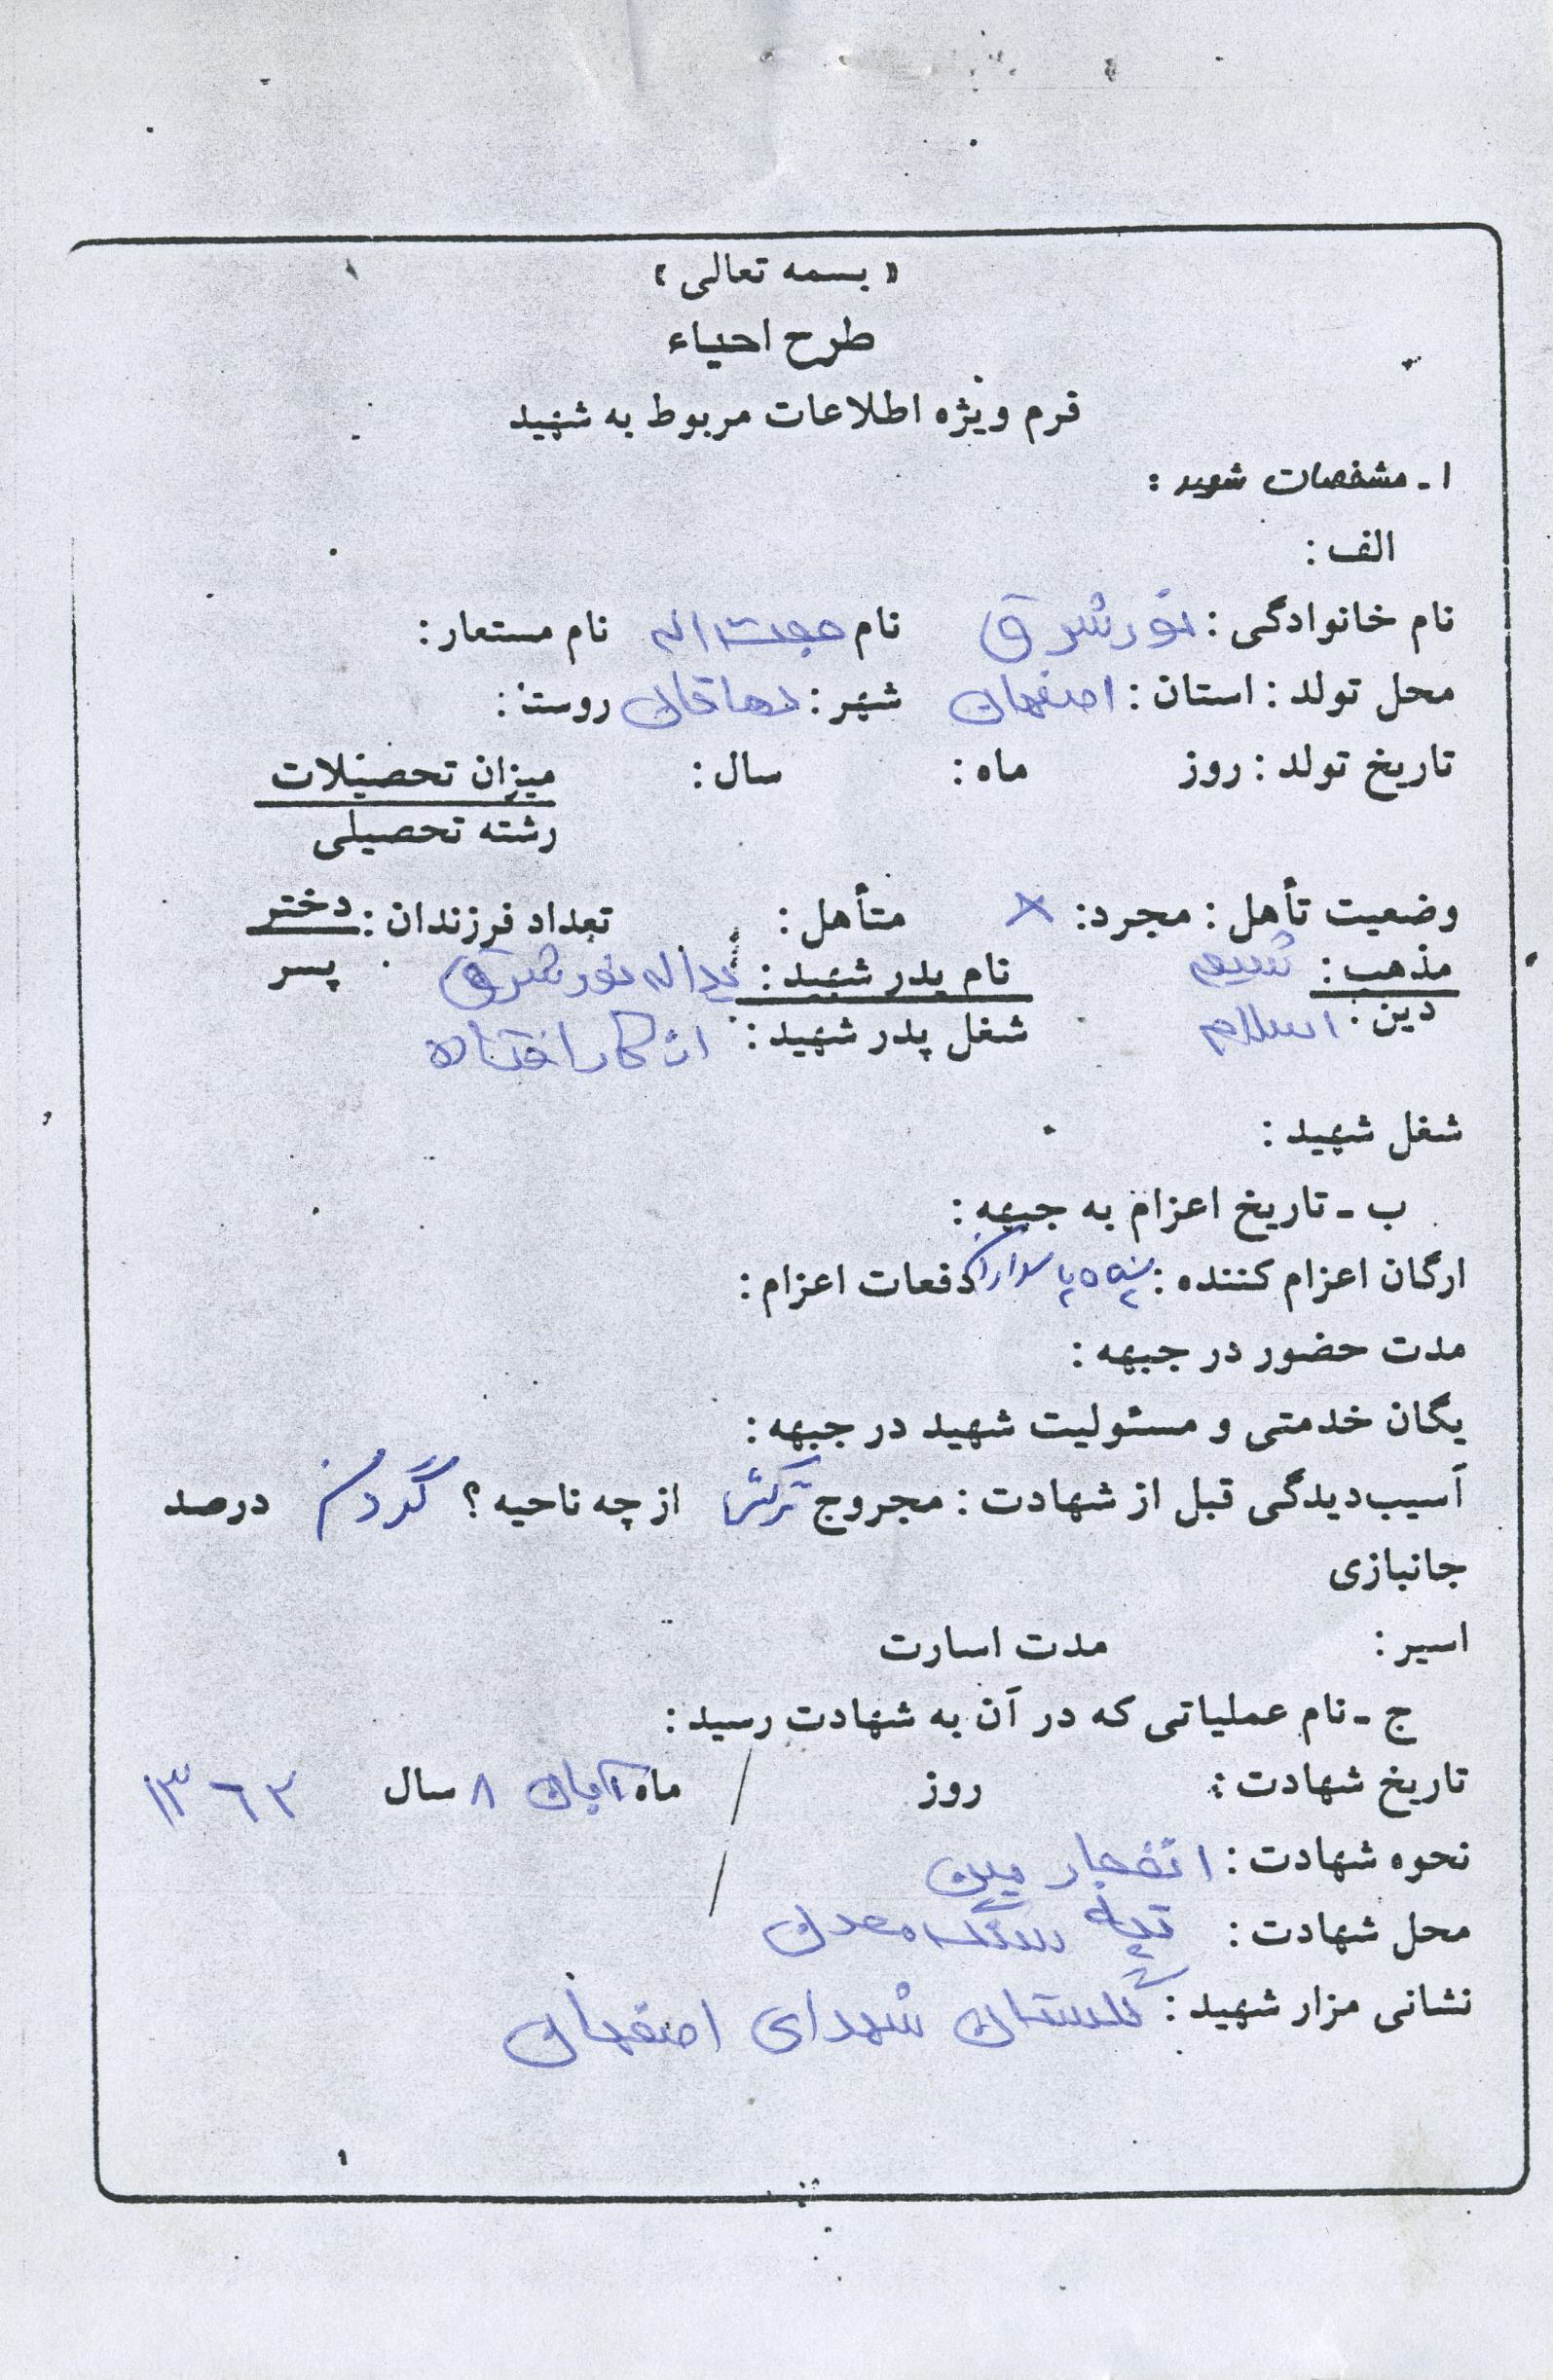 « بسمه تعالی »
طرح احیاء
فرم ویژه اطلاعات مربوط به شهید
۱ ـ مشخصات شهید :
الف :
نام خانوادگی : نورشرق نام حجت اله نام مستعار :
محل تولد : استان : اصفهان شهر : دهاقان روستا :
تاریخ تولد : روز ماه : سال : میزان تحصیلات
رشته تحصیلی
وضعیت تأهل : مجرد : × متأهل : تعداد فرزندان : دختر
مذهب : شیعه نام پدر شهید : یداله نورشرق پسر
دین : اسلام شغل پدر شهید : از کار افتاده
شغل شهید :
ب ـ تاریخ اعزام به جبهه :
ارگان اعزام کننده : سپاه پاسداران دفعات اعزام :
مدت حضور در جبهه :
یگان خدمتی و مسئولیت شهید در جبهه :
آسیب‌دیدگی قبل از شهادت : مجروج ترکش از چه ناحیه ؟ گردن درصد
جانبازی
اسیر : مدت اسارت
ج ـ نام عملیاتی که در آن به شهادت رسید :
تاریخ شهادت : روز / ماه آبان ۸ سال ۱۳۶۲
نحوه شهادت : انفجار مین /
محل شهادت : تپه سنگ معدن
نشانی مزار شهید : گلستان شهدای اصفهان